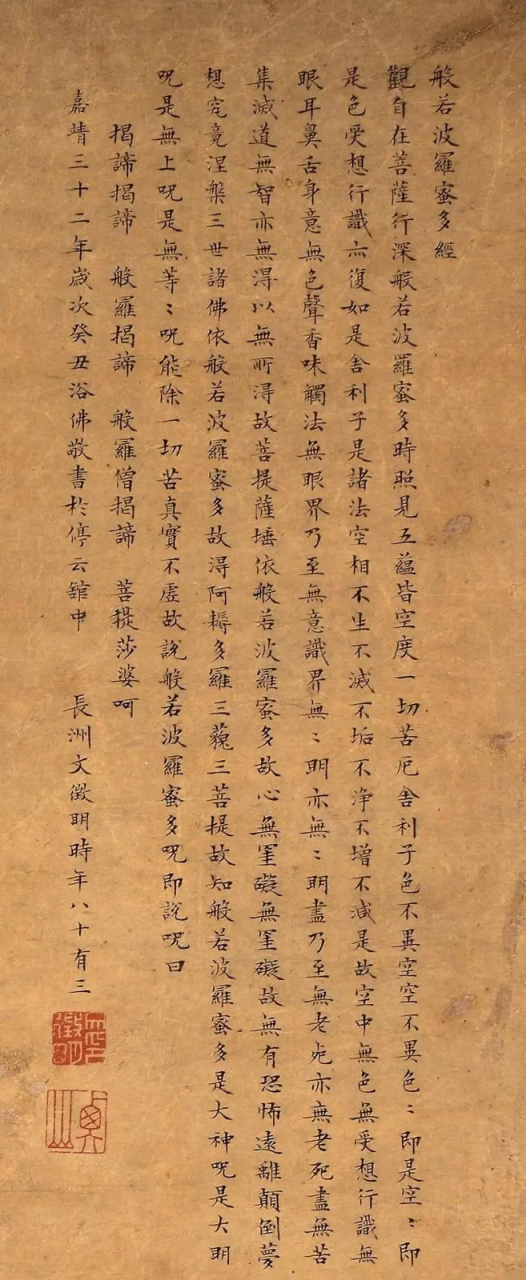 般若波羅蜜多經
觀自在菩薩行深般若波羅蜜多時照見五蘊皆空度一切苦厄舍利子色不異空空不異色〻即是空〻即
是色受想行識亦復如是舍利子是諸法空相不生不滅不垢不淨不增不減是故空中無色無受想行識無
眼耳鼻舌身意無色聲香味觸法無眼界乃至無意識界無〻明亦無〻明盡乃至無老死亦無老死盡無苦
集滅道無智亦無得以無所得故菩提薩埵依般若波羅蜜多故心無罣礙無罣礙故無有恐怖遠離顛倒夢
想究竟涅槃三世諸佛依般若波羅蜜多故得阿耨多羅三藐三菩提故知般若波羅蜜多是大神呪是大明
呪是無上呪是無等〻呪能除一切苦真實不虛故說般若波羅蜜多呪即說呪曰
揭諦揭諦 般羅揭諦 般羅僧揭諦 菩提莎婆呵
嘉靖三十二年歲次癸丑浴佛敬書於停云舘中 長洲文徵明時年八十有三